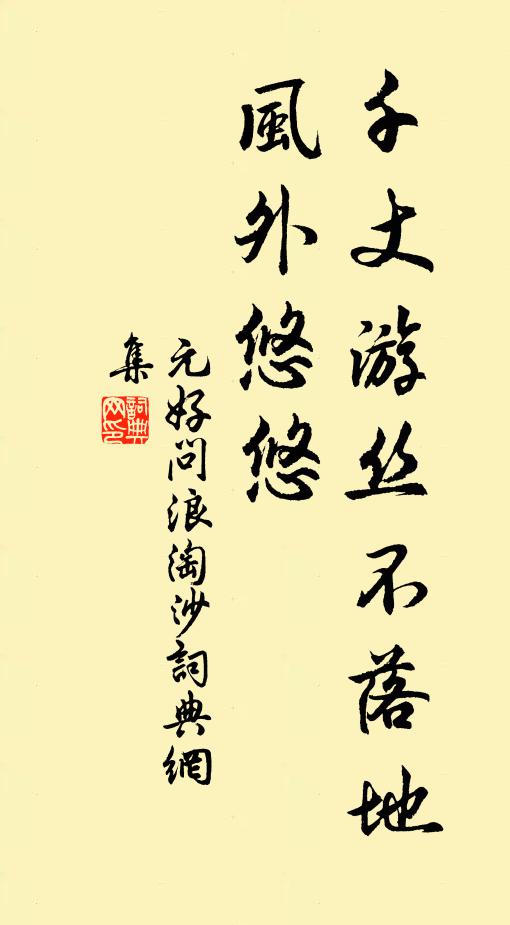 千丈游丝不落地
風外悠悠
元好问浪淘沙詞典網
集
詞典
网印